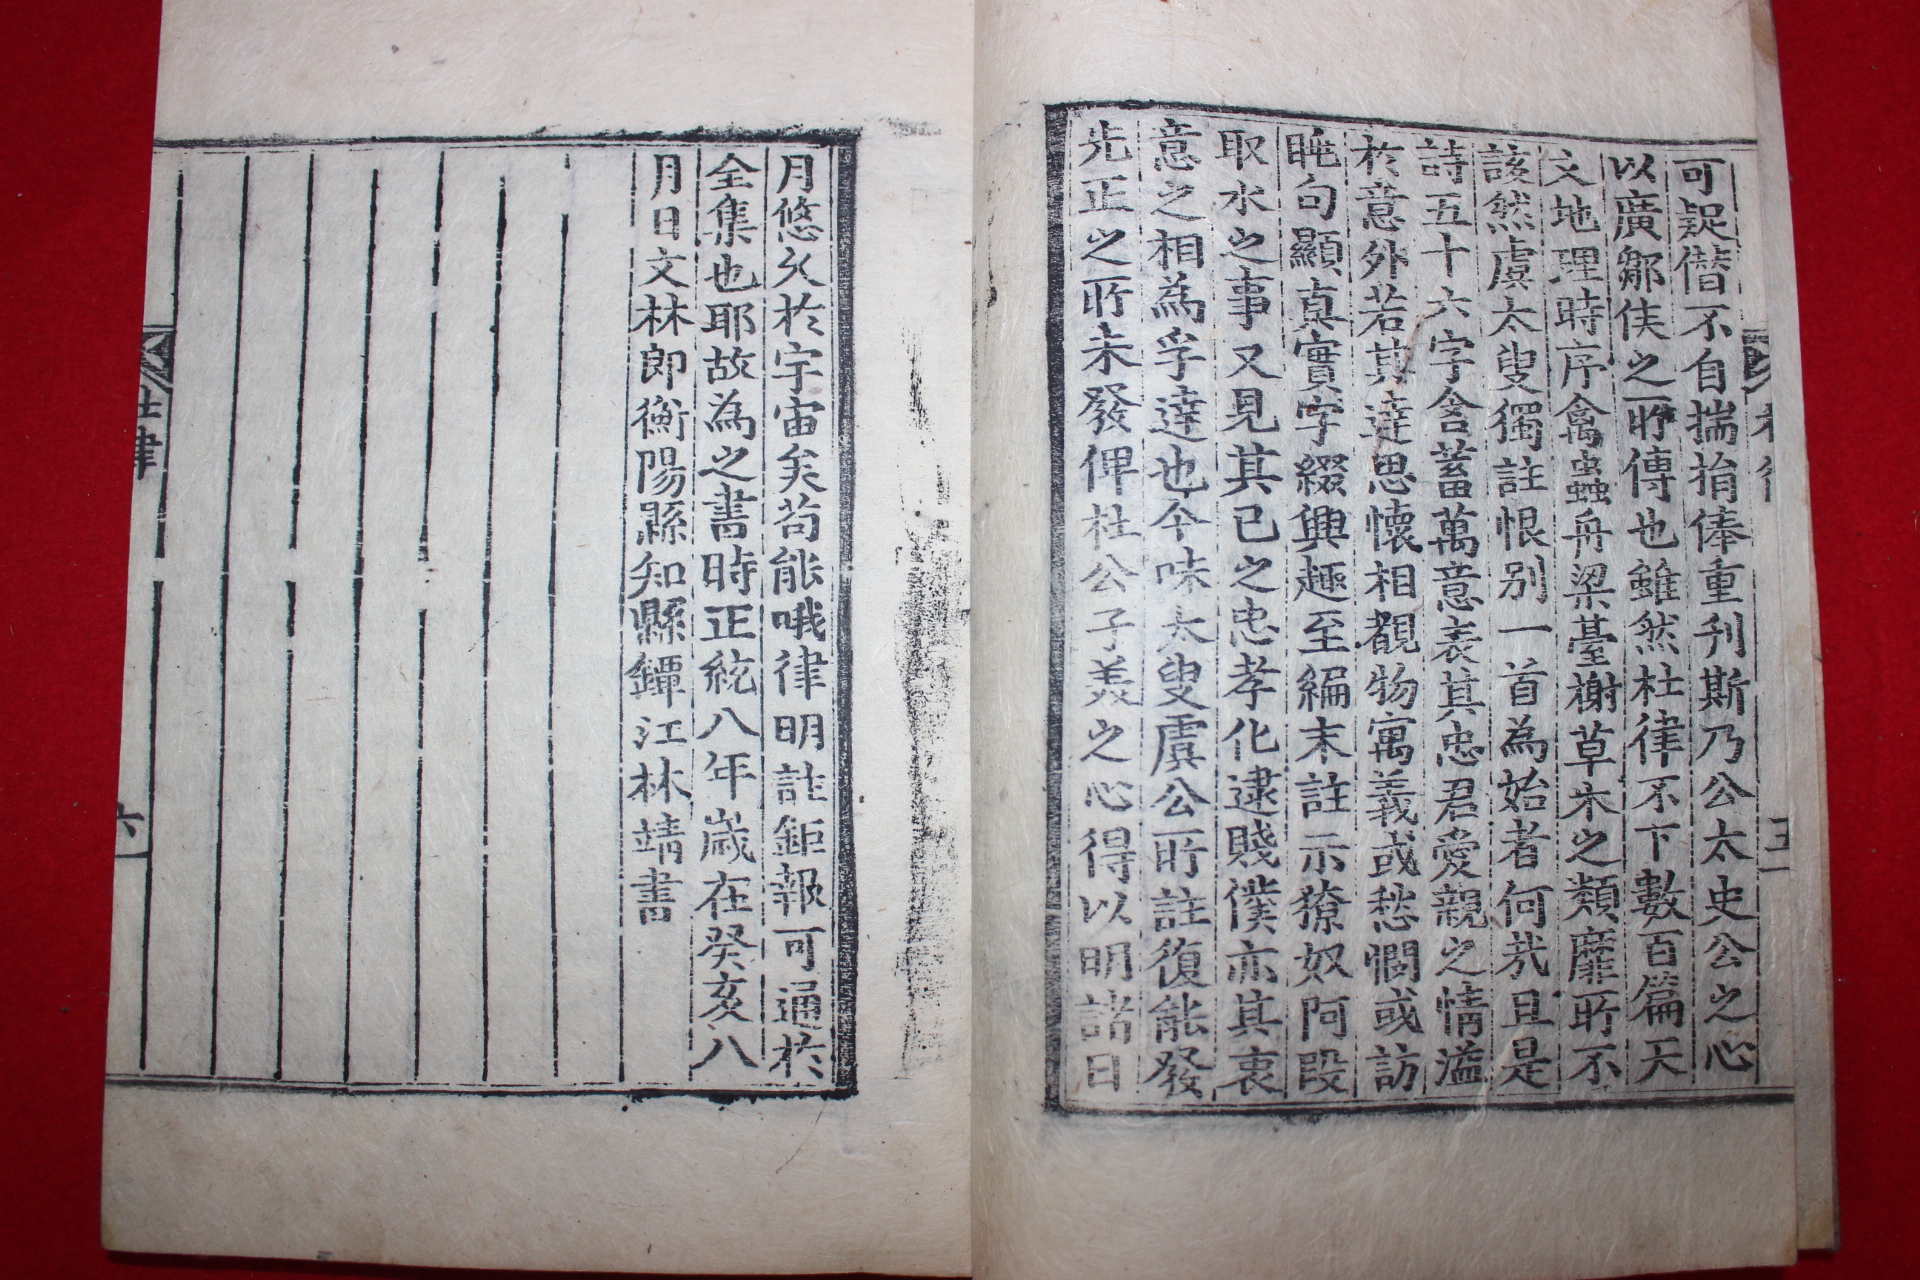 可疑僭不自揣捐俸重刋斯乃公太史公之心
以廣鄒侯之所傳也雖然杜律不下數百篇天
文地理時序禽蟲舟梁臺榭草木之類靡所不
該然虞太叟獨註恨别一首為始者何㢤且是
詩五十六字含蓄萬意表其忠君愛親之情溢
於意外若其達思懐相覩物寓義或愁憫或訪
眺句顯真實字綴興趣至編末註示獠奴阿段
取水之事又見其已之忠孝化逮賤僕亦其衷
意之相為孚達也今味太叟虞公所註復能發
先正之所未發俾杜公子美之心得以明諸日
五
月悠久於宇宙矣苟能哦律明註鉅報可通於
全集也耶故為之書時正統八年歲在癸亥八
月日文林郎衡陽縣知縣鐔江林靖書
杜律
六